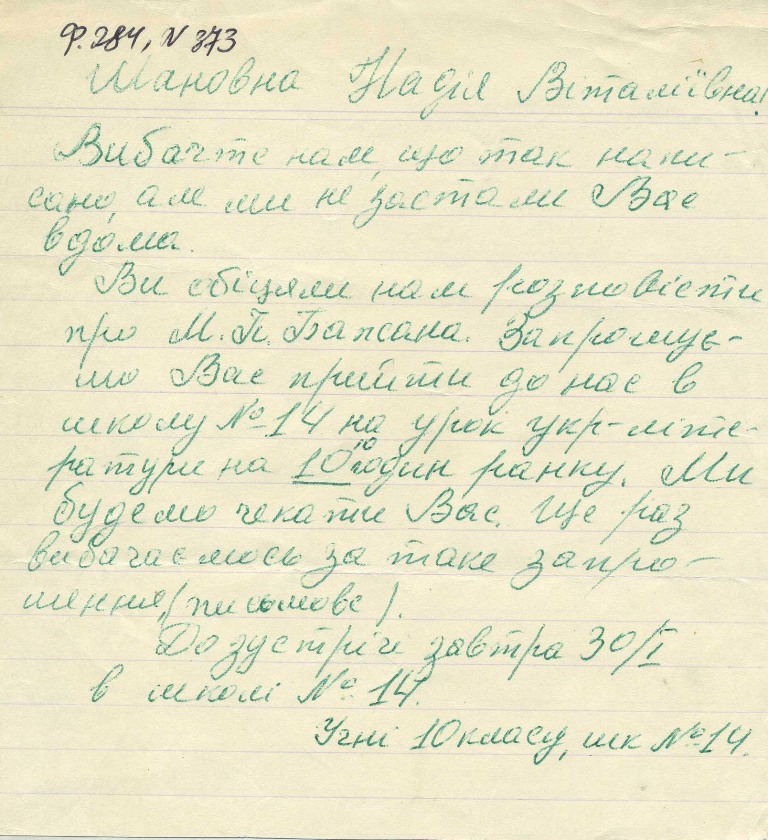 Ф. 284, N 373
Шановна Надія Віталіївна!
Вибачте нам, що так напи-
сано, але ми не застали Вас
вдома.
Ви обіцяли нам розповісти
про М. П. Бажана. Запрошує-
мо Вас прийти до нас в
школу № 14 на урок укр-літе-
ратури на 10¹⁰ годин ранку. Ми
будемо чекати Вас. Ще раз
вибачаємось за таке запро-
шення, (письмове).
До зустрічі завтра 30/I
в школі № 14.
Учні 10 класу, шк № 14.